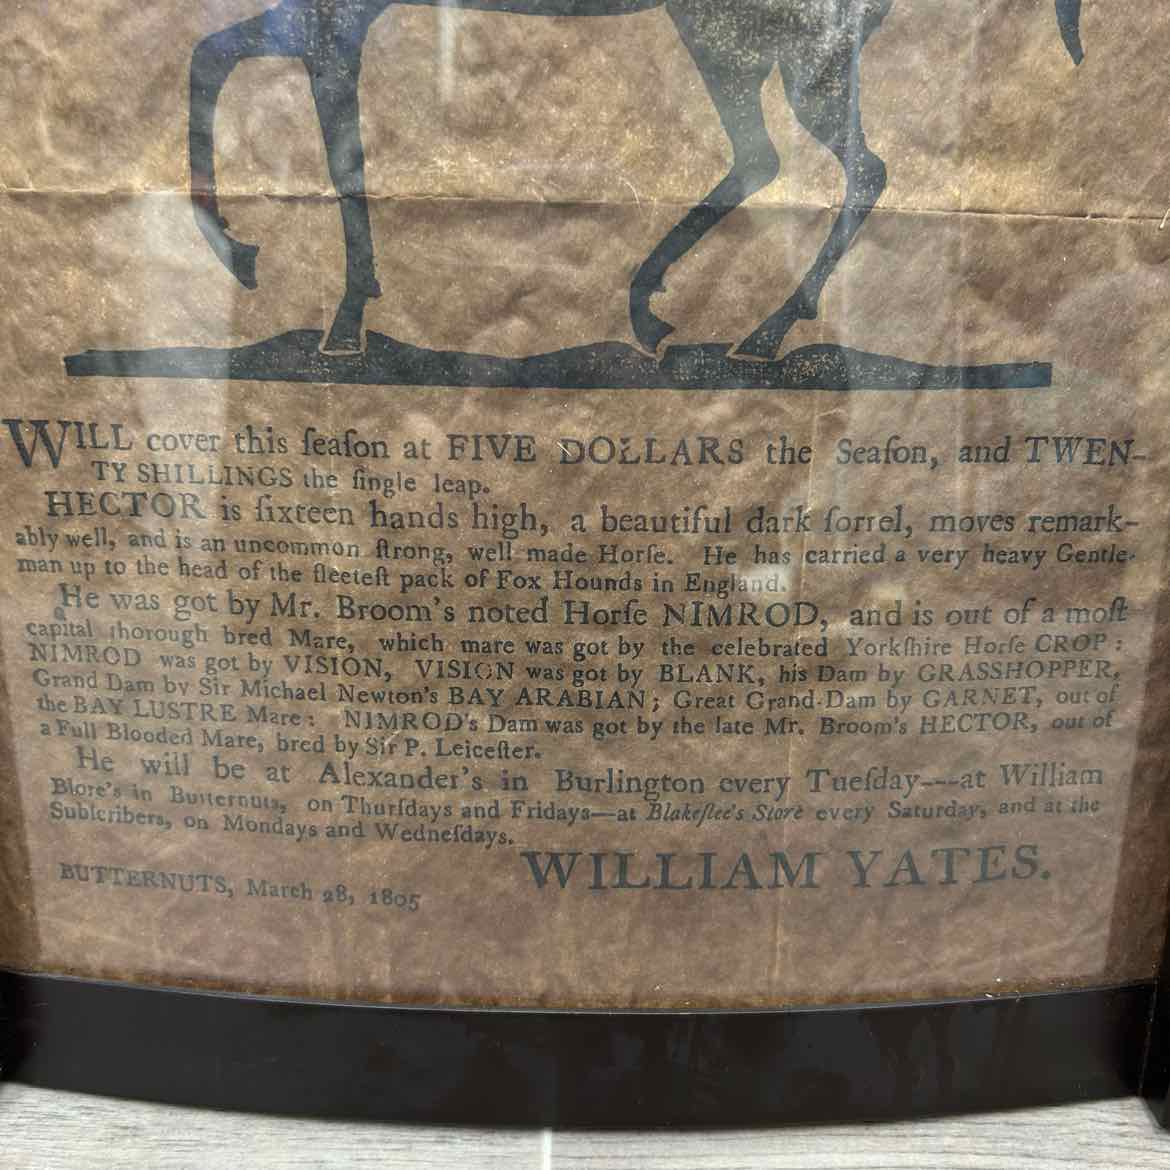 WILL cover this ſeaſon at FIVE DOLLARS the Seaſon, and TWEN-
TY SHILLINGS the ſingle leap.
HECTOR is ſixteen hands high, a beautiful dark ſorrel, moves remark-
ably well, and is an uncommon ſtrong, well made Horſe. He has carried a very heavy Gentle-
man up to the head of the fleeteſt pack of Fox Hounds in England.
He was got by Mr. Broom's noted Horſe NIMROD, and is out of a moſt
capital thorough bred Mare, which mare was got by the celebrated Yorkſhire Horſe CROP:
NIMROD was got by VISION, VISION was got by BLANK, his Dam by GRASSHOPPER,
Grand Dam by Sir Michael Newton's BAY ARABIAN; Great Grand-Dam by GARNET, out of
the BAY LUSTRE Mare: NIMROD's Dam was got by the late Mr. Broom's HECTOR, out of
a Full Blooded Mare, bred by Sir P. Leiceſter.
He will be at Alexander's in Burlington every Tueſday—at William
Blore's in Butternuts, on Thurſdays and Fridays—at Blakeſlee's Store every Saturday, and at the
Subſcribers, on Mondays and Wedneſdays.
WILLIAM YATES.
BUTTERNUTS, March 28, 1805